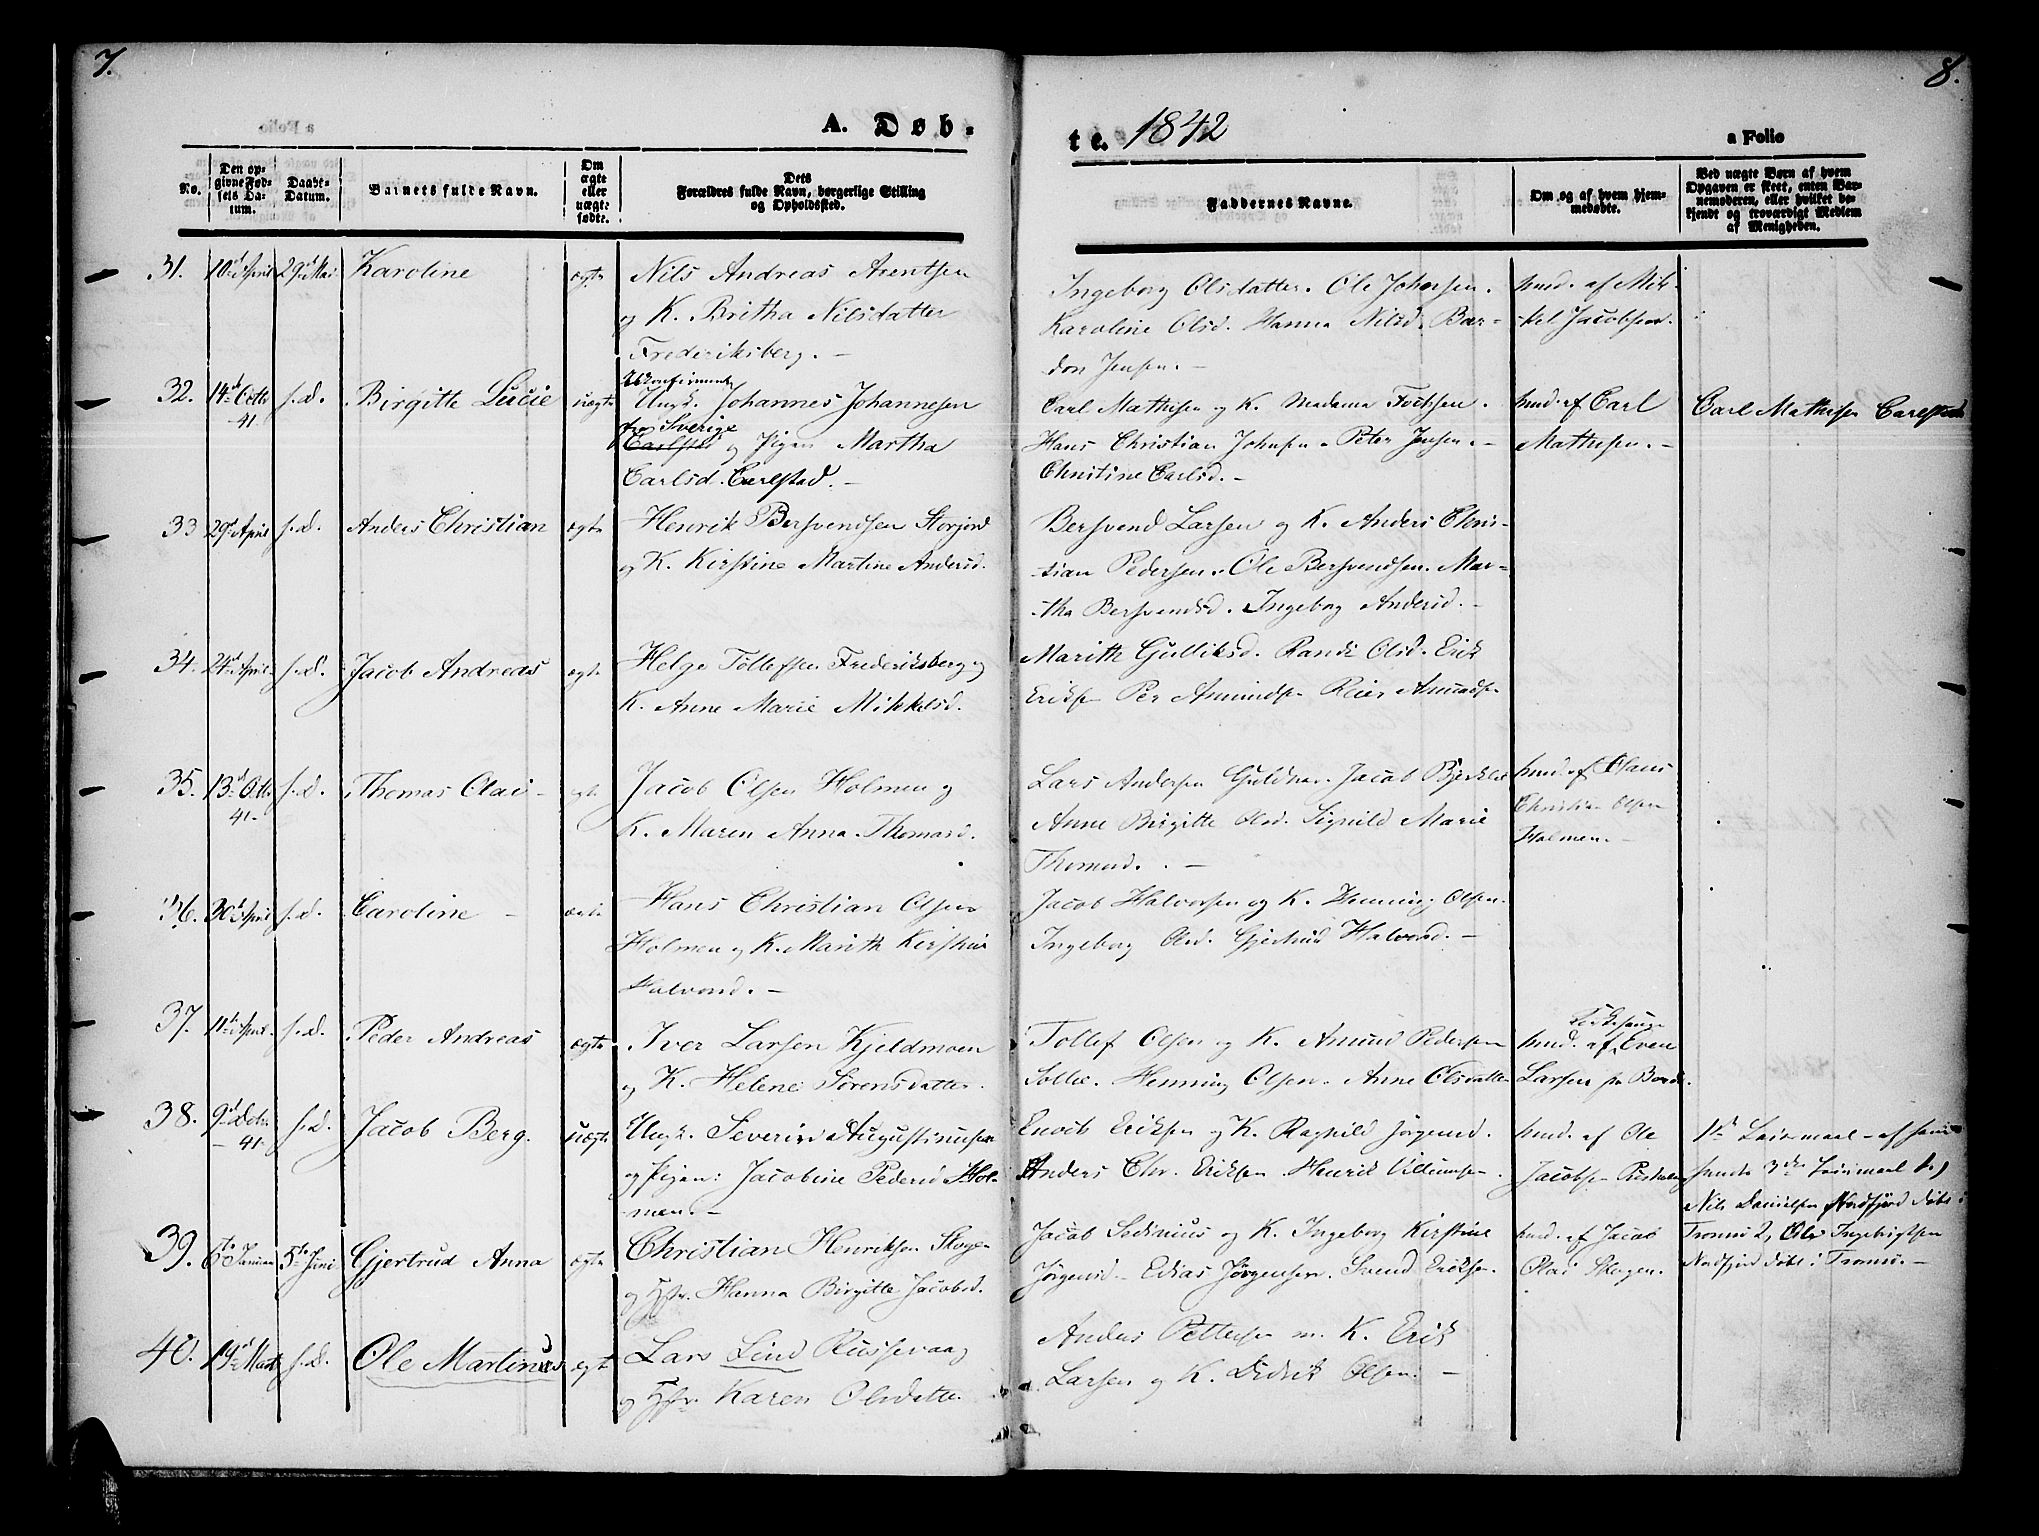 7.
8.
A. Døb-
te. 1842
a Folio
No.
Den op-
givne Fød-
sels Da-
tum.
Daabs-
Datum.
Barnets fulde Navn.
Om
ægte
eller
uægte
fødte.
Dets
Forældres fulde Navn, borgerlige Stilling
og Opholdssted.
Faddernes Navne.
Om og af hvem hjem-
medøbte.
Ved uægte Børn af hvem
Opgaven er skeet, enten Bar-
nemoderen, eller hvilket be-
kjendt og troværdigt Medlem
af Menigheden.
31. 10d April 29d Mai Karoline ægte Nils Andreas Arentsen
og K. Britha Nilsdatter
Frederiksberg. –
Ingeborg Olsdatter. Ole Johansen.
Karoline Olsd. Hanna Nilsd. Bar-
don Jensen. –
hmd. af Mik-
kel Jacobsen.
32. 14d Octbr s. d. Birgitte Lucie uægte Ungk. Johannes Johannesen
41.
fra Sverige
og Pigen Martha
Carlsd. Carlstad. –
Carl Mathisen og K. Madame Fochsen.
Hans Christian Johnsen. Peter Jensen. –
Christine Carlsd. –
hmd. af Carl
Mathisen. –
Carl Mathisen Carlstad
33 29d April s. d. Anders Christian ægte Henrik Bersvendsen Storjord
og K. Kirstine Martine Andersd.
Bersvend Larsen og K. Anders Chris-
tian Pedersen. Ole Bersvendsen. Mar-
tha Bersvendsd. Ingeborg Andersd. –
34. 24d April s. d. Jacob Andreas ægte Helge Tollefsen Frederiksberg og
K. Anne Marie Mikkelsd.
Marith Gulliksd. Randi Olsd. Erik
Eriksen Per Amundsen Reier Amundsen
35. 13d Octbr s. d. Thomas Olai – ægte Jacob Olsen Holmen og
41.
K. Maren Anna Thomasd.
Lars Andersen Guldhav. Jacob Bjerklie
Anne Birgitte Olsd. Signild Marie
Thomasd. –
hmd. af Hans
Christian Olsen
Holmen. –
36. 30d April s. d. Caroline – ægte Hans Christian Olsen
Holmen og K. Marith Kirstine
Halvorsd. –
Jacob Halvorsen og K. Henning Olsen.
Ingeborg Olsd. Gjertrud Halvorsd. –
37. 11d April s. d. Peder Andreas ægte Iver Larsen Kjeldmoen
og K. Helene Sørensdatter.
Tollef Olsen og K. Amund Pedersen
Sollie. Henning Olsen. Anne Olsdatter
hmd. af Even
Larsen
38. 9d Octbr s. d. Jacob Berg. uægte Ungk. Severin Augustinusen
– 41.
og Pigen: Jacobine Pedersd Hol-
men. –
Enoch Eriksen og K. Ragnild Jørgensd.
Anders Chr. Eriksen. Henrik Villumsen.
hmd. af Ole
Jacobsen
1d Leiermaal – af
3die Leiermaal 1,)
Nils Danielsen Nordfjord døbt i
Tromsø 2, Ole Ingebrigtsen
Nordfjord døbt i Tromsø. –
39. 6te Januar 5te Juni Gjertrud Anna ægte Christian Henriksen Skogen
og Hstr. Hanna Birgitte Jacobsd.
Jacob Sedenius og K. Ingeborg Kirstine
Jørgensd – Edias Jørgensen. Svend Eriksen.
hmd. af Jacob
Olai Skogen.
40. 19d Marts s. d. Ole Martinus ægte Lars Lind Russevaag
og Hstr. Karen Olsdatter.
Anders Pettersen m. K. Erik
Larsen og K. Didrik Olsen. –